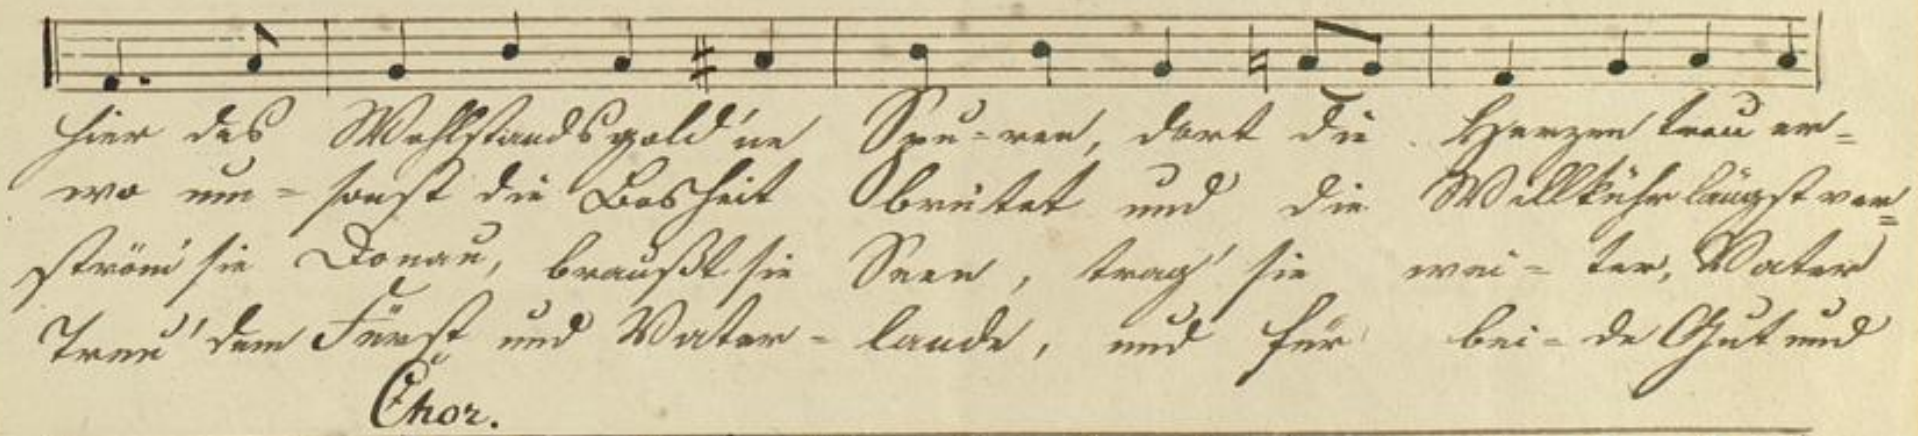 hier des Wohlstands gold'ne Spu-ren, dort die Herzen treu er=
wo um-sonst die Bosheit brütet und die Willkühr längst ver=
ström' sie Donau, braußt sie Seen, trag' sie wei-ter, Vater
Treu' dem Fürst und Vater-lande, und für bei-de Gut und
Chor.